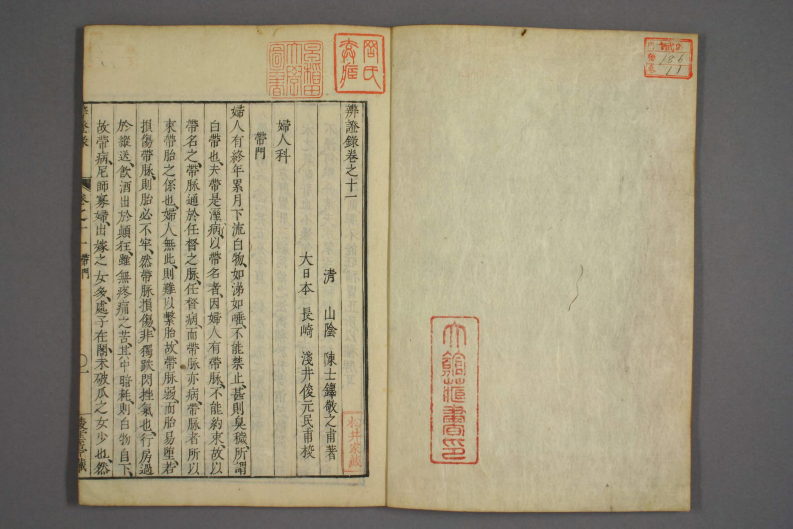 辨證錄卷之十一
清　山陰　陳士鐸敬之甫著
大日本　長崎　淺井俊元民甫校
婦人科
帶門
婦人有終年累月下流白物、如涕如唾、不能禁止、甚則臭穢所謂
白帶也、夫帶是溼病、以帶名者、因婦人有帶脈、不能約束、故以
帶名之、帶脈通於任督之脈、任督病、而帶脈亦病、帶脈者所以
束帶胎之係也、婦人無此、則難以繫胎、故帶脈弱、而胎易墮、若
損傷帶脈、則胎必不牢、然帶脈損傷、非獨跌閃挫氣也、行房過
於縱送、飲酒出於顛狂、雖無疼痛之苦、其中暗耗、則白物自下、
故帶病、尼師寡婦、出嫁之女多、處子在閨、未破瓜之女少也、然
辨證錄　卷之十一　帶門　〇一